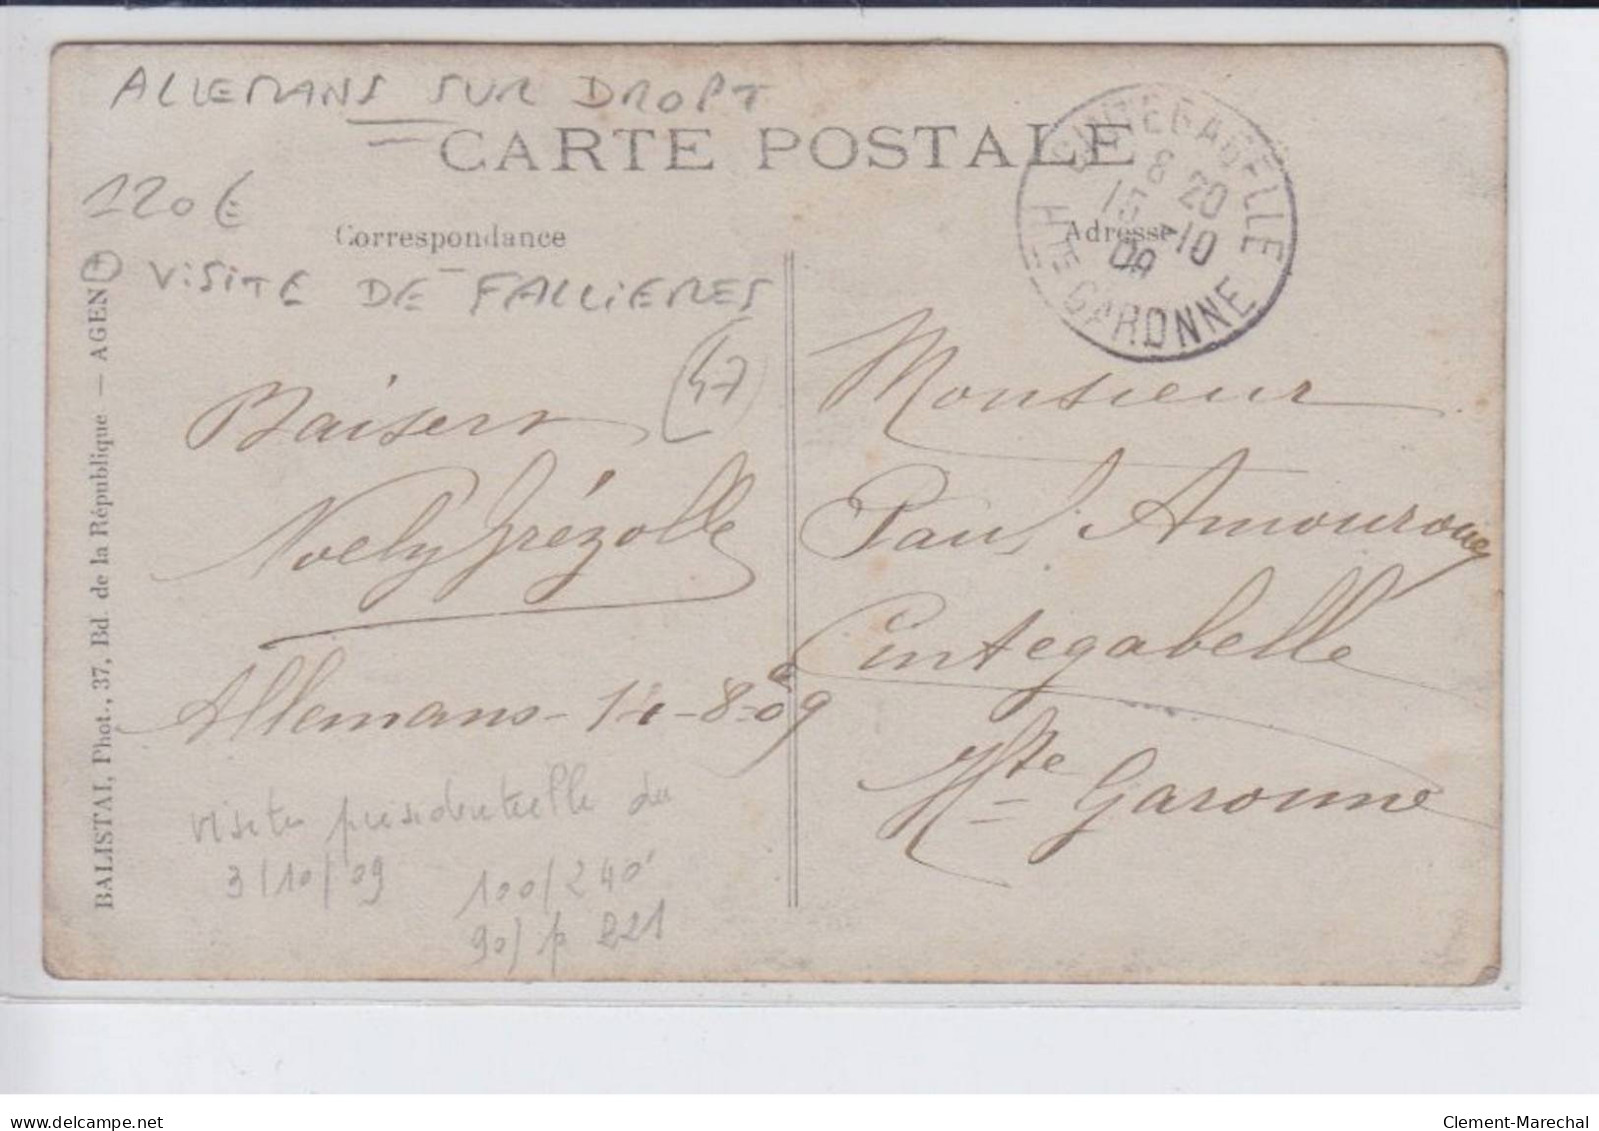 ALLEMANS SUR DROPT
CARTE POSTALE
120€
Correspondance
Adresse
CINTEGABELLE
8 20
15 -10
09
HTE GARONNE
VISITE DE FALLIERES
(47)
Baisers
Noely Grézolle
Allemans - 14-8-09
Monsieur
Paul Amouroux
Cintegabelle
Hte Garonne
visite présidentielle du
3/10/09
100/240
90/ p 221
BALISTAI, Phot., 37, Bd. de la République — AGEN
delcampe.net
Clement-Marechal